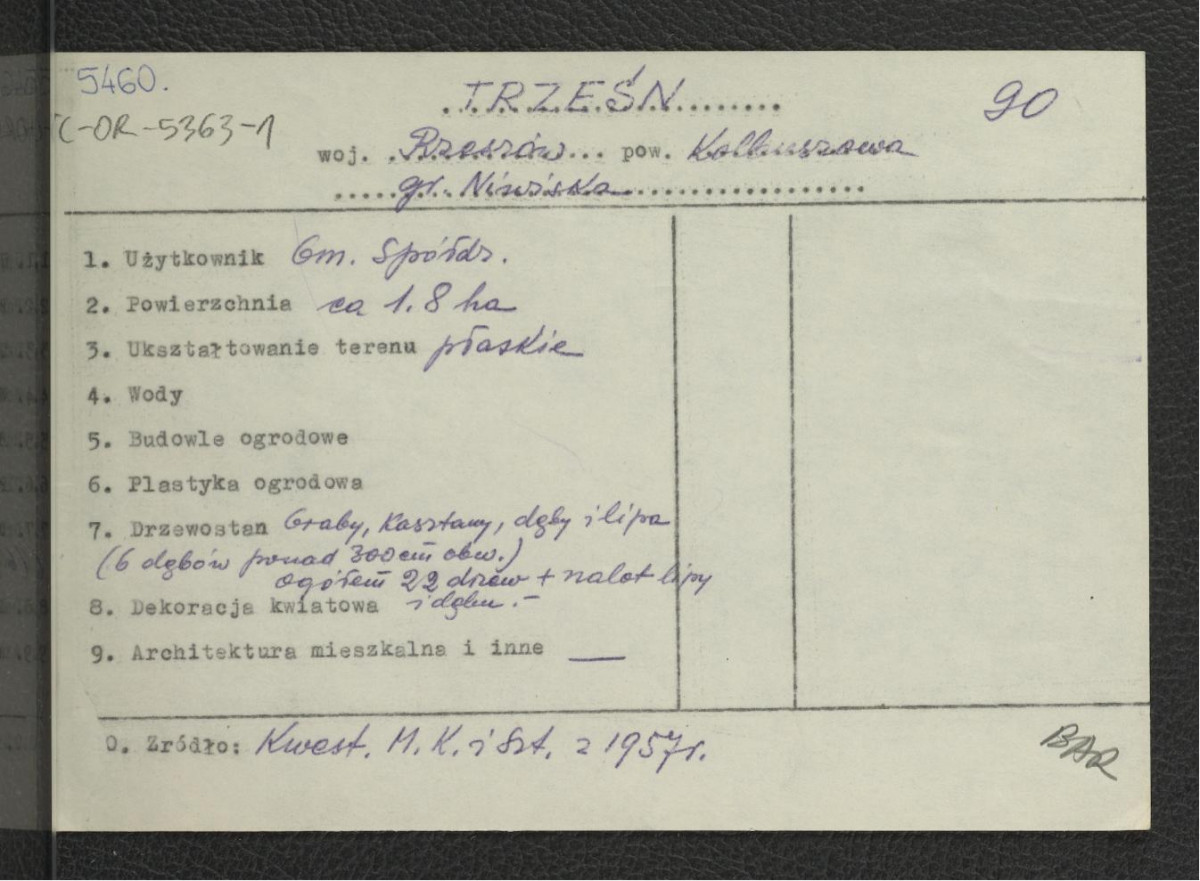 5460.
TRZEŚŃ
90
C-OR-5363-1
woj. Rzeszów pow. Kolbuszowa
gr. Niwiska
1. Użytkownik Gm. Spółdz.
2. Powierzchnia ca 1.8 ha
3. Ukształtowanie terenu płaskie
4. Wody
5. Budowle ogrodowe
6. Plastyka ogrodowa
7. Drzewostan Graby, Kasztany, dęby i lipa
(6 dębów ponad 300 cm obw.)
ogółem 22 drzew + nalot lipy
8. Dekoracja kwiatowa i dębu. –
9. Architektura mieszkalna i inne —
0. Zródło: Kwest. M. K. i Szt. z 1957r.
BAR